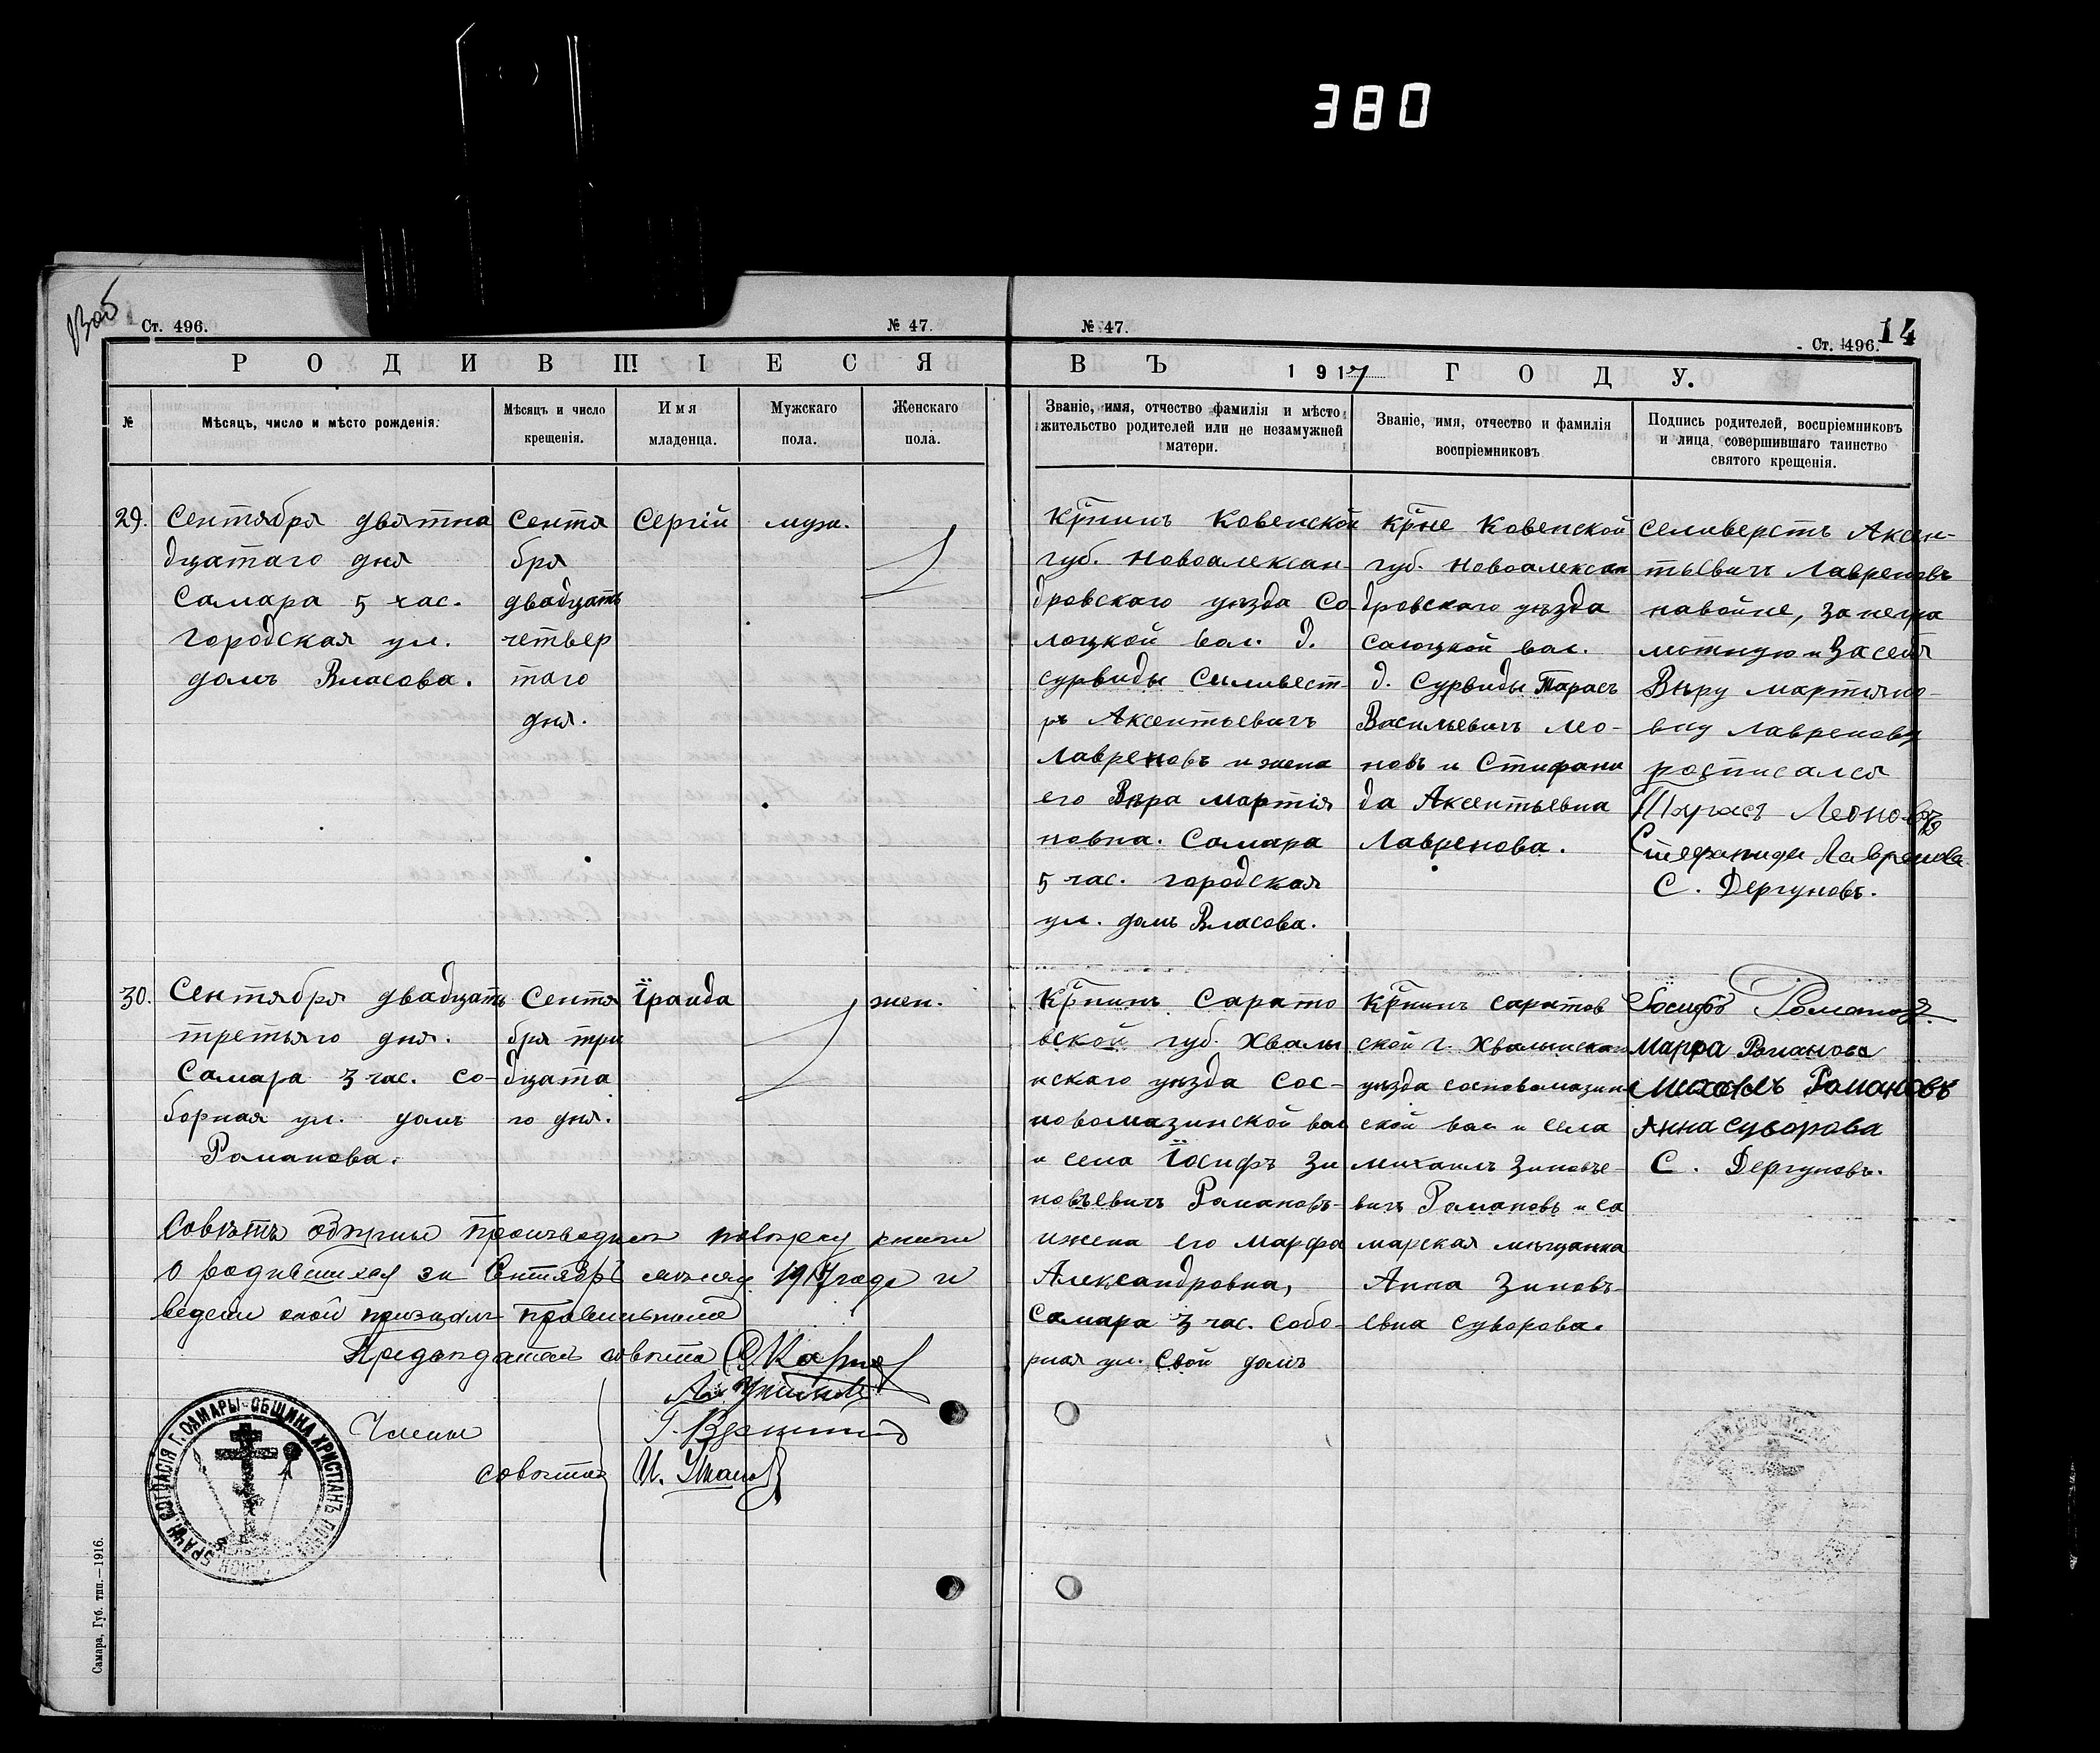 380
Ст. 496.
№ 47.
№ 47.
Ст. 496.
14
РОДИВШІЕСЯ
ВЪ 1917 ГОДУ.
№
Мѣсяцъ, число и мѣсто рожденія.
Мѣсяцъ и число
крещенія.
Имя
младенца.
Мужскаго
пола.
Женскаго
пола.
Званіе, имя, отчество фамилія и мѣсто
жительство родителей или не незамужней
матери.
Званіе, имя, отчество и фамилія
воспріемниковъ
Подпись родителей, воспріемниковъ
и лица, совершившаго таинство
святого крещенія.
29.
Сентября двятна
дцатаго дня
Самара 5 час.
городская ул.
домъ Власова.
Сентя
бря
двадцать
четвер
таго
дня.
Сергій
муж.
Крнинъ Ковенской
губ. Новоалексан-
дровскаго уѣзда Со-
лоцкой вол. д.
Сурвиды Силивест-
ръ Аксентьевичъ
Лавреновъ и жена
его Вѣра Мартія
новна. Самара
5 час. городская
ул. домъ Власова.
Крне Ковенской
губ. Новоалексан
дровскаго уѣзда
Солоцкой вол.
д. Сурвиды Тарасъ
Васильевичъ Лео-
новъ и Стифани
да Аксентьевна
Лавренова.
Селиверстъ Аксен-
тьевичъ Лавреновъ
на войне, за негра
мотную и За себя
Вѣру Мартьяно-
вну Лавренову
росписался
Тарасъ Леоновъ
Стефанида Лавренова
С. Дергуновъ.
30.
Сентября двадцать
третьяго дня.
Самара 3 час. Со-
борная ул. домъ
Романова.
Сентя
бря три
дцата
го дня.
Їраида
жен.
Крнинъ Сарато
вской губ. Хвалы
нскаго уѣзда Сос-
новомазинской вол
и села Їосифъ Зи
новьевичъ Романовъ-
и жена его Марфа
Александровна,
Самара 3 час. Собо-
рная ул. свой домъ
Крнинъ Саратов
ской г. Хвалынскаго
уѣзда сосновомазин
ской вол и села
Михаилъ Зиновье-
вичъ Романовъ и са
марская мѣщанка
Анна Зиновь-
евна Суворова.
Іосифъ Романовъ
Марфа Романова
Михаилъ Романовъ
Анна Суворова
С. Дергуновъ.
Совѣтъ общины производилъ повѣрку книги
о родившихся за Сентябрь месяцъ 1917 года и
ведение оной призналъ правильным
Председатель совѣта
Члены
совѣта
БРАЧН. СОГЛАСІЯ Г. САМАРЫ ОБЩИНА ХРИСТІАНЪ
Самара, Губ. тип.—1916.